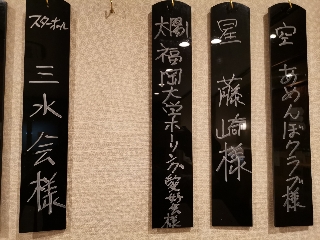 空 あめんぼクラブ様
星 藤崎様
太陽 福岡大学ボーリング愛好会様
スターホール
三水会様